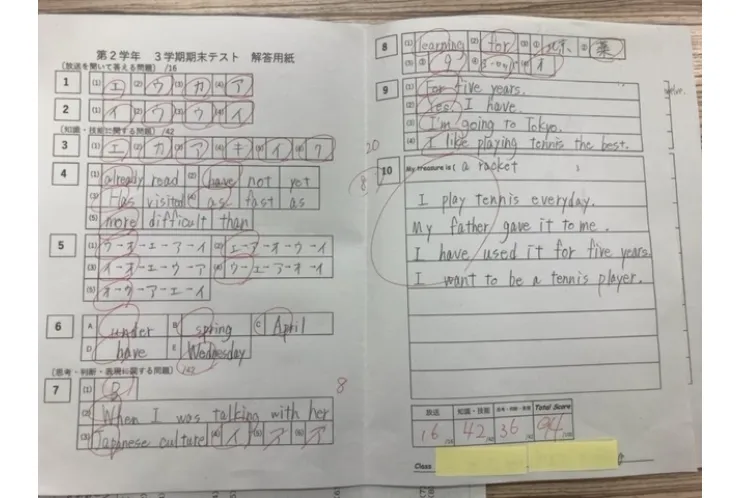 第2学年 3学期期末テスト 解答用紙
(放送を聞いて答える問題) /16
1 (1) エ (2) ウ (3) カ (4) ア
2 (1) イ (2) ウ (3) ウ (4) イ
(知識・技能に関する問題) /42
3 (1) エ (2) カ (3) ア (4) キ (5) イ (6) ク
4 (1) already read (2) have not yet
(3) Has visited (4) as fast as
(5) more difficult than
5 (1) ウ-オ-エ-ア-イ (2) エ-ア-オ-ウ-イ
(3) イ-オ-エ-ウ-ア (4) ウ-エ-ア-オ-イ
(5) オ-ウ-ア-エ-イ
6 A under B spring C April
D have E Wednesday
(思考・判断・表現に関する問題) /42
7 (1) B
8
(2) When I was talking with her
(3) Japanese culture (4) イ (5) ア (6) ア
8 (1) learning (2) for (3) ① ② 薬
(3) 9 (4) (5) イ
9 (1) For five years.
(2) Yes, I have.
(3) I'm going to Tokyo.
(4) I like playing tennis the best.
20
8
10 My treasure is ( a racket )
I play tennis everyday.
My father gave it to me.
I have used it for five years.
I want to be a tennis player.
放送 知識・技能 思考・判断・表現 Total Score
16 /16 42 /42 36 /42 94 /100
Class